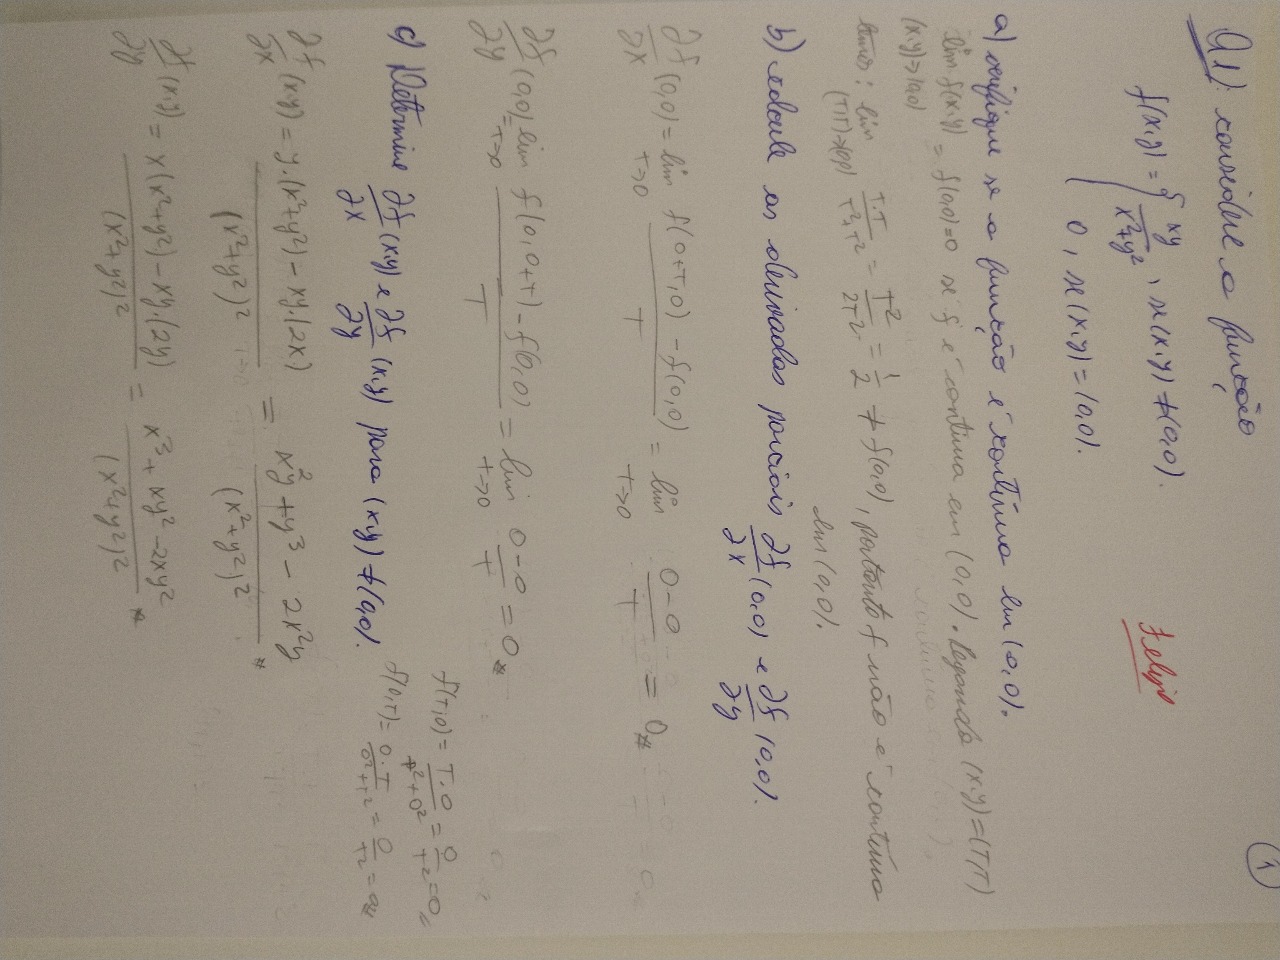 1
Q1) considere a função
f(x,y) = { xy/(x²+y²), se (x,y) ≠ (0,0).
0, se (x,y) = (0,0).
Felipe
a) verifique se a função é contínua em (0,0).
lim f(x,y) = f(0,0) = 0 se f é contínua em (0,0). Pegando (x,y) = (T,T)
(x,y)→(0,0)
temos: lim (T,T)→(0,0) T.T/(T²+T²) = T²/2T² = 1/2 ≠ f(0,0), portanto f não é contínua
em (0,0).
b) calcule as derivadas parciais ∂f/∂x (0,0) e ∂f/∂y (0,0).
∂f/∂x (0,0) = lim T→0 (f(0+T,0) - f(0,0))/T = lim T→0 (0-0)/T = 0 #
∂f/∂y (0,0) = lim T→0 (f(0,0+T) - f(0,0))/T = lim T→0 (0-0)/T = 0 #
f(T,0) = T.0/(T²+0²) = 0/T² = 0 //
f(0,T) = 0.T/(0²+T²) = 0/T² = 0 #
c) Determine ∂f/∂x (x,y) e ∂f/∂y (x,y) para (x,y) ≠ (0,0).
∂f/∂x (x,y) = (y.(x²+y²) - xy.(2x))/(x²+y²)² = (x²y + y³ - 2x²y)/(x²+y²)² #
∂f/∂y (x,y) = (x(x²+y²) - xy.(2y))/(x²+y²)² = (x³ + xy² - 2xy²)/(x²+y²)² #